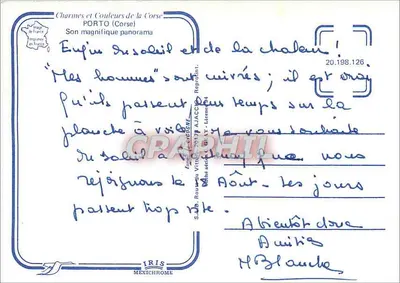 Charmes et Couleurs de la Corse
PORTO (Corse)
Son magnifique panorama
20.198.126
Enfin du soleil et de la chaleur !
"Mes hommes" sont cuivrés ; il est vrai
qu'ils passent leurs temps sur la
planche à voile. Je vous souhaite
du soleil à que nous
rejoignons le Août - Les jours
passent trop vite.
A bientôt donc
Amitiés
M Blanche
IRIS
MEXICHROME